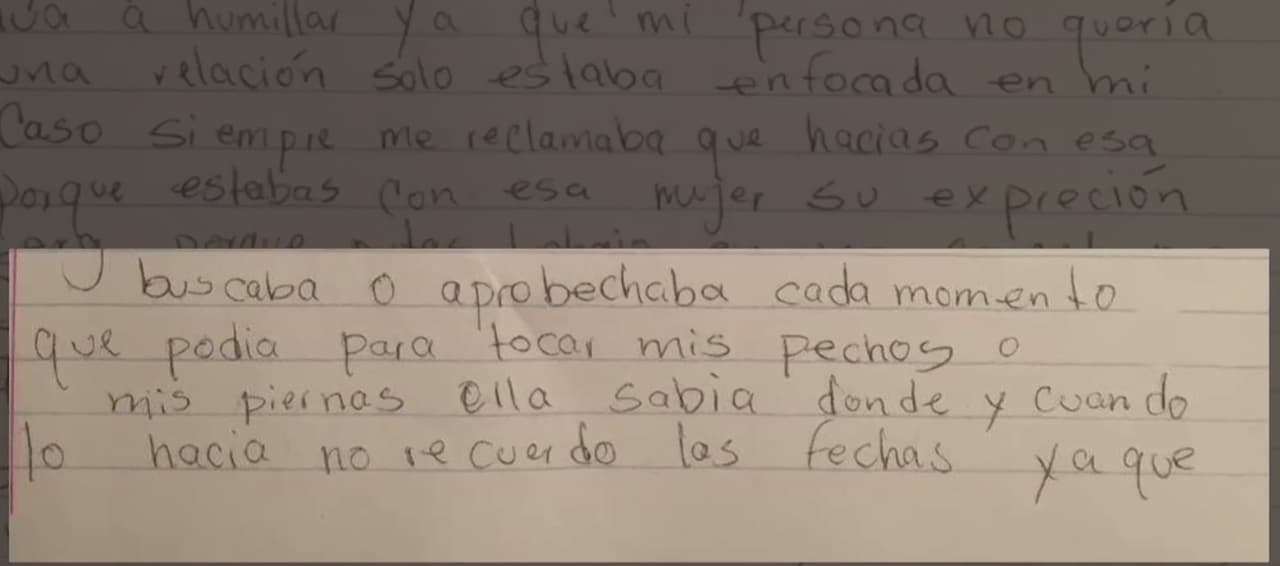 a humillar ya que mi persona no quería
una relación solo estaba enfocada en mi
Caso siempre me reclamaba que hacias con esa
Porque estabas con esa mujer su expreción
porque
y buscaba o aprobechaba cada momento
que podia para tocar mis pechos o
mis piernas ella sabia donde y cuando
lo hacia no recuerdo las fechas ya que